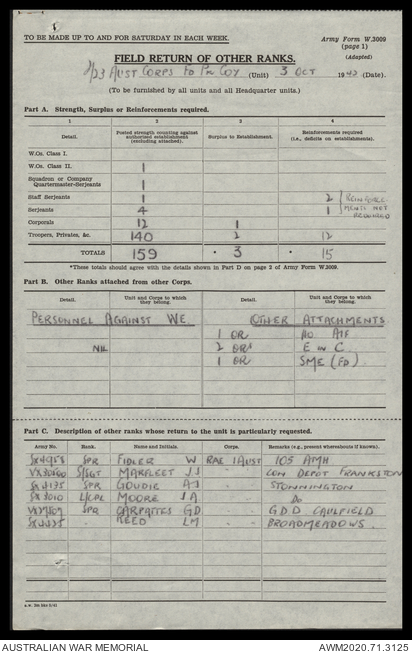 TO BE MADE UP TO AND FOR SATURDAY IN EACH WEEK.
Army Form W.3009
(page 1)
(Adapted)
FIELD RETURN OF OTHER RANKS.
2/23 AUST CORPS FD PK COY (Unit) 3 OCT 1942 (Date).
(To be furnished by all units and all Headquarter units.)
Part A. Strength, Surplus or Reinforcements required.
1 2 3 4
Detail. Posted strength counting against authorized establishment (excluding attached). Surplus to Establishment. Reinforcements required (i.e., deficits on establishments).
W.Os. Class I.
W.Os. Class II. 1
Squadron or Company Quartermaster-Serjeants 1
Staff Serjeants 1 2 REINFORCE-
Serjeants 4 1 MENTS NOT REQUIRED
Corporals 12 1
Troopers, Privates, &c. 140 2 12
TOTALS 159 3 15
*These totals should agree with the details shown in Part D on page 2 of Army Form W.3009.
Part B. Other Ranks attached from other Corps.
Detail. Unit and Corps to which they belong. Detail. Unit and Corps to which they belong.
PERSONNEL AGAINST WE. OTHER ATTACHMENTS
1 OR HQ AIF
NIL 2 ORs E in C
1 OR SME (FD)
Part C. Description of other ranks whose return to the unit is particularly requested.
Army No. Rank. Name and Initials. Corps. Remarks (e.g., present whereabouts if known).
SPR FIDLER W RAE 1 AUST 105 AMH
S/SGT MARFLEET J J " CON DEPOT FRANKSTON
SPR GOUDIE A J " STONNINGTON
SX3010 L/CPL MOORE J A " Do
SPR G D " G D D CAULFIELD
" REED L M " BROADMEADOWS.
AUSTRALIAN WAR MEMORIAL
AWM2020.71.3125